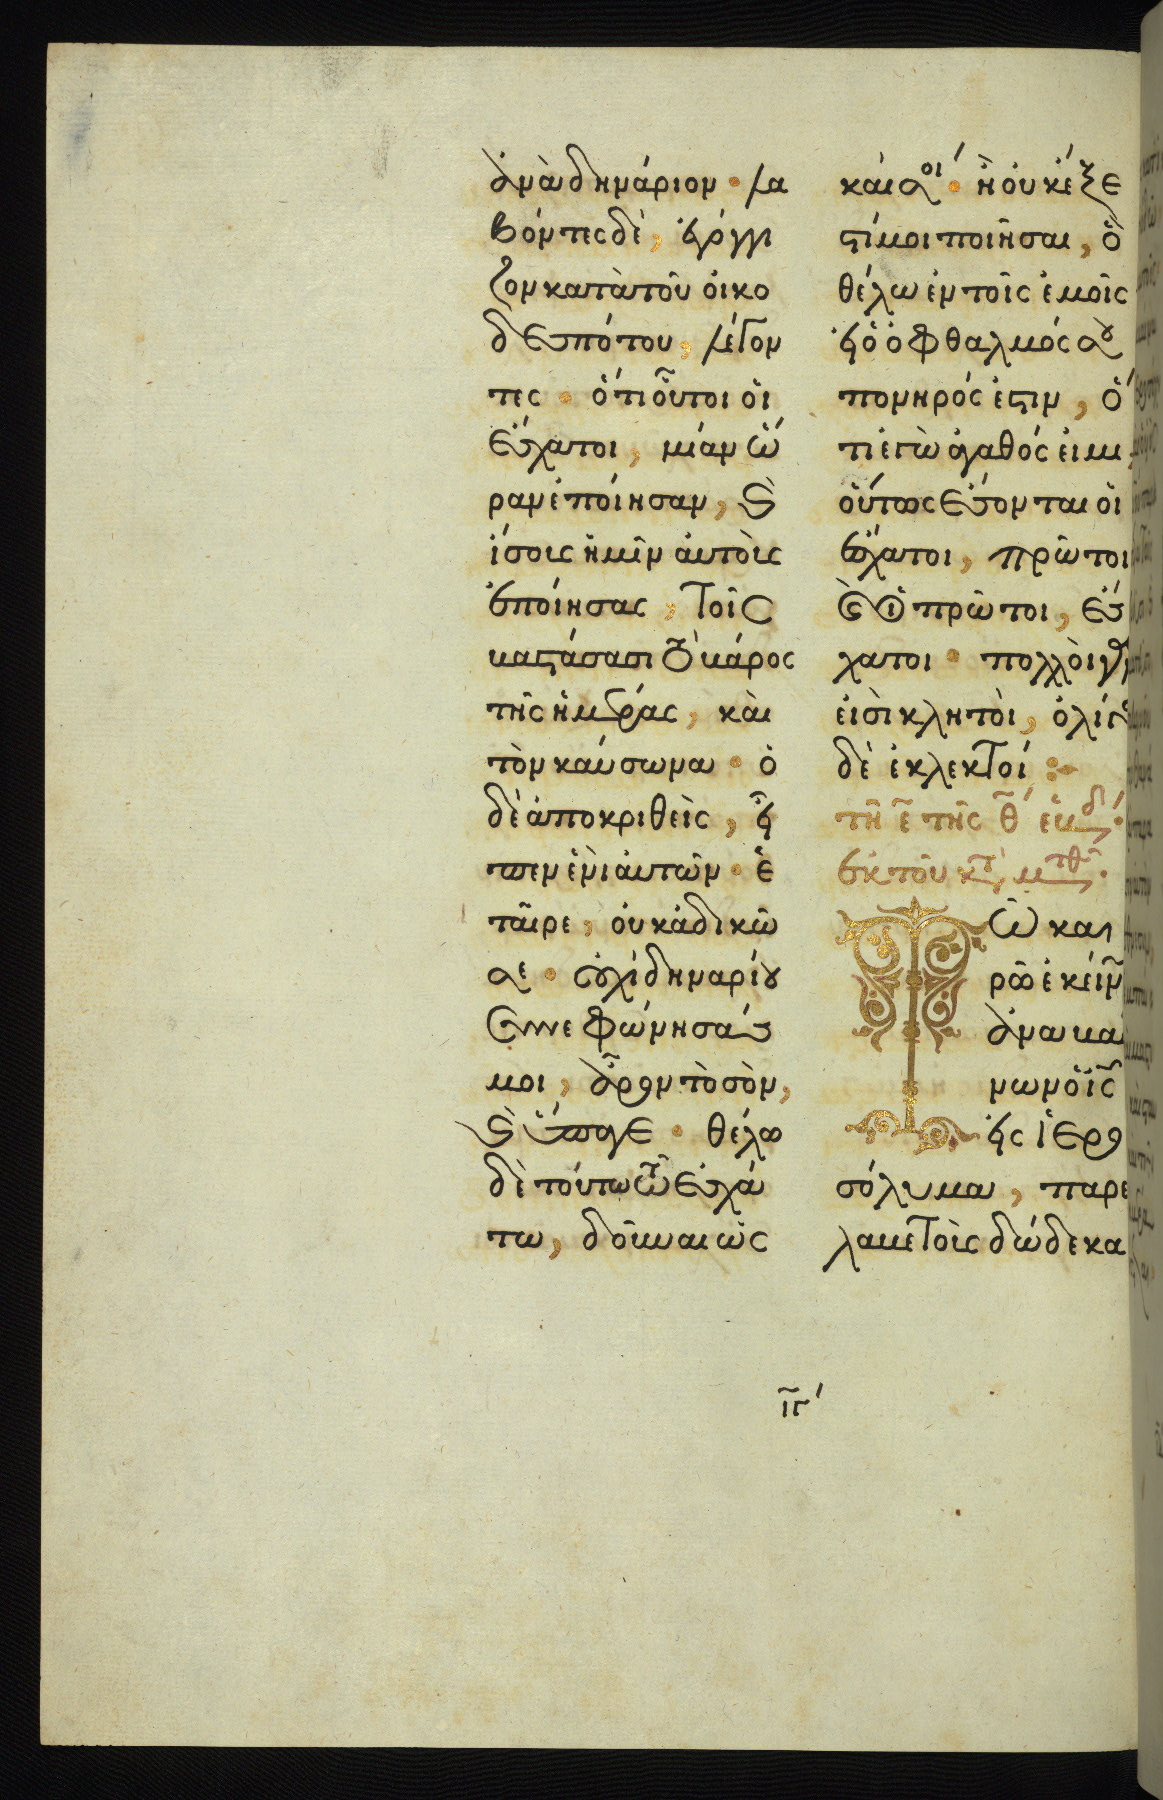 ἀνὰ δηνάριον · λα
βόντες δὲ, ἐγόγγι
ζον κατὰ τοῦ οἰκο
δεσπότου, λέγον
τες · ὅτι οὗτοι οἱ
ἔσχατοι, μίαν ὥ
ραν ἐποίησαν, καὶ
ἴσοις ἡμῖν αὐτοὺς
ἐποίησας, τοῖς
βαστάσασι τὸ βάρος
τῆς ἡμέρας, καὶ
τὸν καύσωνα · ὁ
δὲ ἀποκριθεὶς, εἶ
πεν ἑνὶ αὐτῶν · ἑ
ταῖρε, οὐκ ἀδικῶ
σε · οὐχὶ δηναρίου
συνεφώνησάς
μοι, ἆρον τὸ σὸν,
καὶ ὕπαγε · θέλω
δὲ τούτω τῶ ἐσχά
τω, δοῦναι ὡς
καί σοί · ἢ οὐκ ἔξε
στί μοι ποιῆσαι, ὃ
θέλω ἐν τοῖς ἐμοῖς
εἰ ὁ ὀφθαλμός σου
πονηρός ἐστιν, ὅ
τι ἐγὼ ἀγαθός εἰμι,
οὕτως ἔσονται οἱ
ἔσχατοι, πρῶτοι
καὶ οἱ πρῶτοι, ἔσ
χατοι · πολλοὶ γάρ
εἰσὶ κλητοὶ, ὀλίγοι
δὲ ἐκλεκτοί :
τῆ ε̄ τῆς θ̄ ἑβδ ·
ἐκ τοῦ κτ μτθ ·
Τῶ και
ρῶ ἐκείν
ἀναβαί
νων ὁ ις
εἰς ἱερο
σόλυμα, παρέ
λαβε τοὺς δώδεκα
ιγ